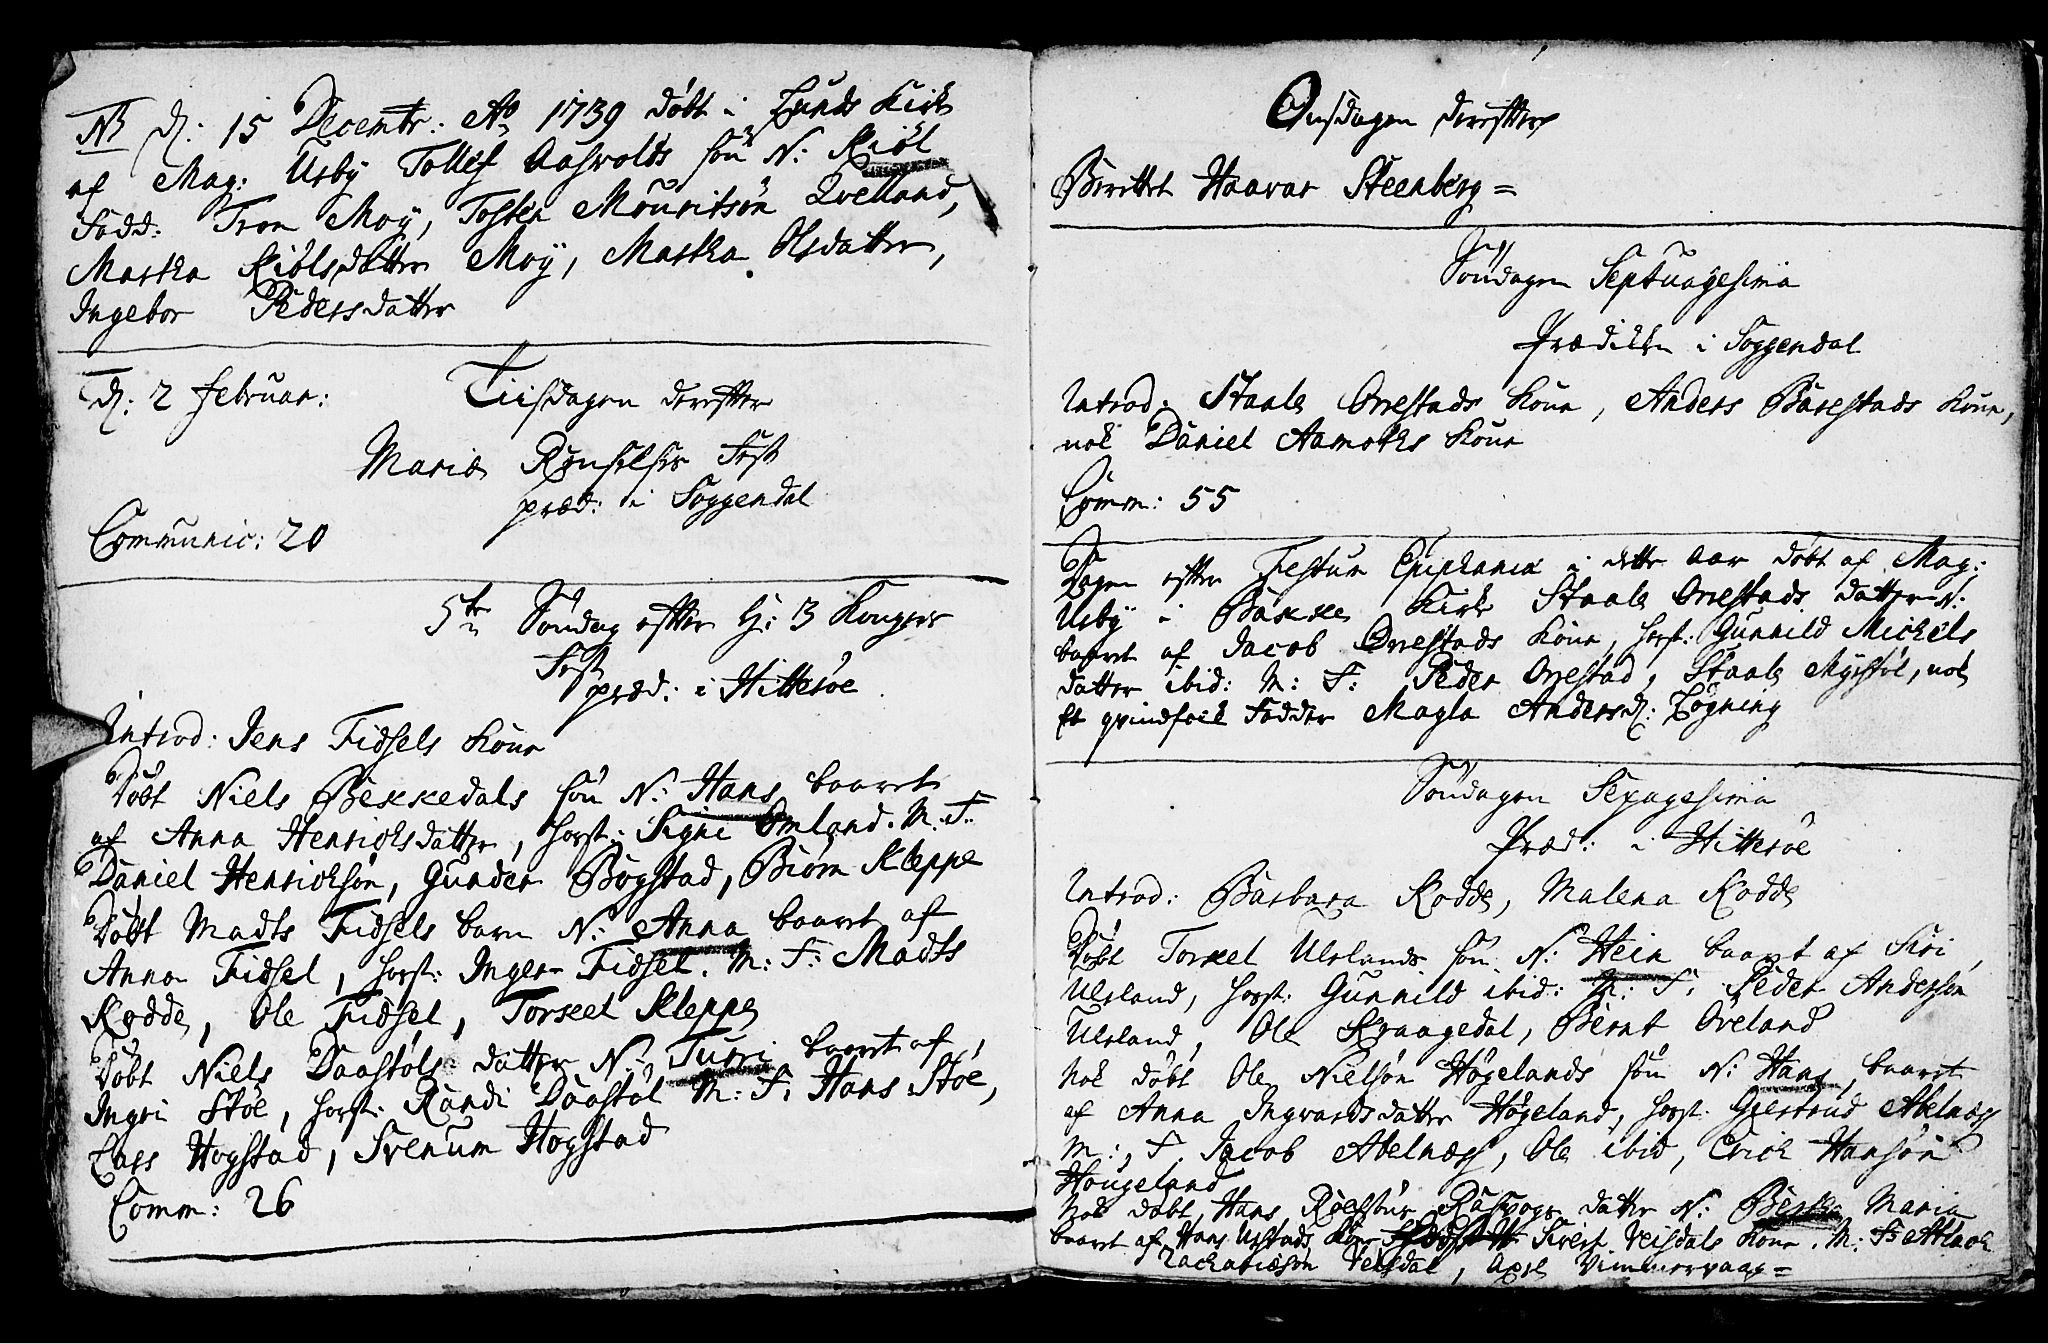 NB d: 15 Decembr: Ao 1739 døbt i Lunds Kirke
af Mag: Usby Tollef Aasvolds søn N: Kiøl
Fadd: Tron Moÿ, Tosten Mouritsøn Qvelland,
Martha Kiølsdatter Moÿ, Martha Olsdatter,
Ingebor Pedersdatter
d: 2 Februar: Tiisdagen derefter
Mariæ Renselses Fest
præd: i Soggendal
Communic: 20
5te Søndag efter H: 3 Kongers
Fest
præd: i Hitterøe
Introd: Jens Fidsels Kone
Døbt Niels Bekkedals søn N: Hans baaret
af Anna Henrichsdatter, horst: Signe Omland. M: F:
Daniel Henrichsøn, Gunder Bogstad, Biørn Kleppe
Døbt Madts Fidsels barn N: Anna baaret af
Anna Fidsel, horst: Inger Fidsel. M: F: Madts
Rodde, Ole Fidsel, Torkel Kleppe
Døbt Niels Daastøls datter N: Turi baaret af
Ingri Støe, horst: Randi Daastøl M: F: Hans Støe,
Lars Hogstad, Svenum Hogstad
Comm: 26
Onsdagen derefter
Berettet Haavar Steenberg =
Søndagen Septuagesima
Prædiken i Soggendal
Introd: Staale Orrestads Kone, Anders Barestads Kone,
nok Daniel Aamoths Kone
Comm: 55
Dagen efter Festum Epiphaniæ i dette Aar døbt af Mag:
Usby i Bakke Kirke Staale Orrestads datter N:
baaret af Jacob Orrestads Kone, horst: Gunnild Michels
datter ibid: M: F: Peder Orrestad, Staale Myrstøl, nok
Et qvindfolk Fadder Magla Andersd: Løgning
Søndagen Sexagesima
Præd: i Hitterøe
Introd: Barbara Rodde, Malena Rodde
Døbt Torkel Ulslands søn N: Hein baaret af Siri
Ulsland, horst: Gunnild ibid: M: F: Peder Andersøn
Ulsland, Ole Kraagedal, Bernt Oveland
Nok døbt Ole Nielsøn Høgelands søn N: Hans, baaret
af Anna Ingvardsdatter Høgeland, horst: Giertrud Abelnæss
M:, F. Jacob Abelnæss, Ole ibid, Erich Hansøn
Hougeland
Nok døbt Hans datter N: Bertha Maria
baaret af Hans Ustads Kone Sivert Veisdals Kone. M: F:
Zachariæsøn Veisdal, Axel =